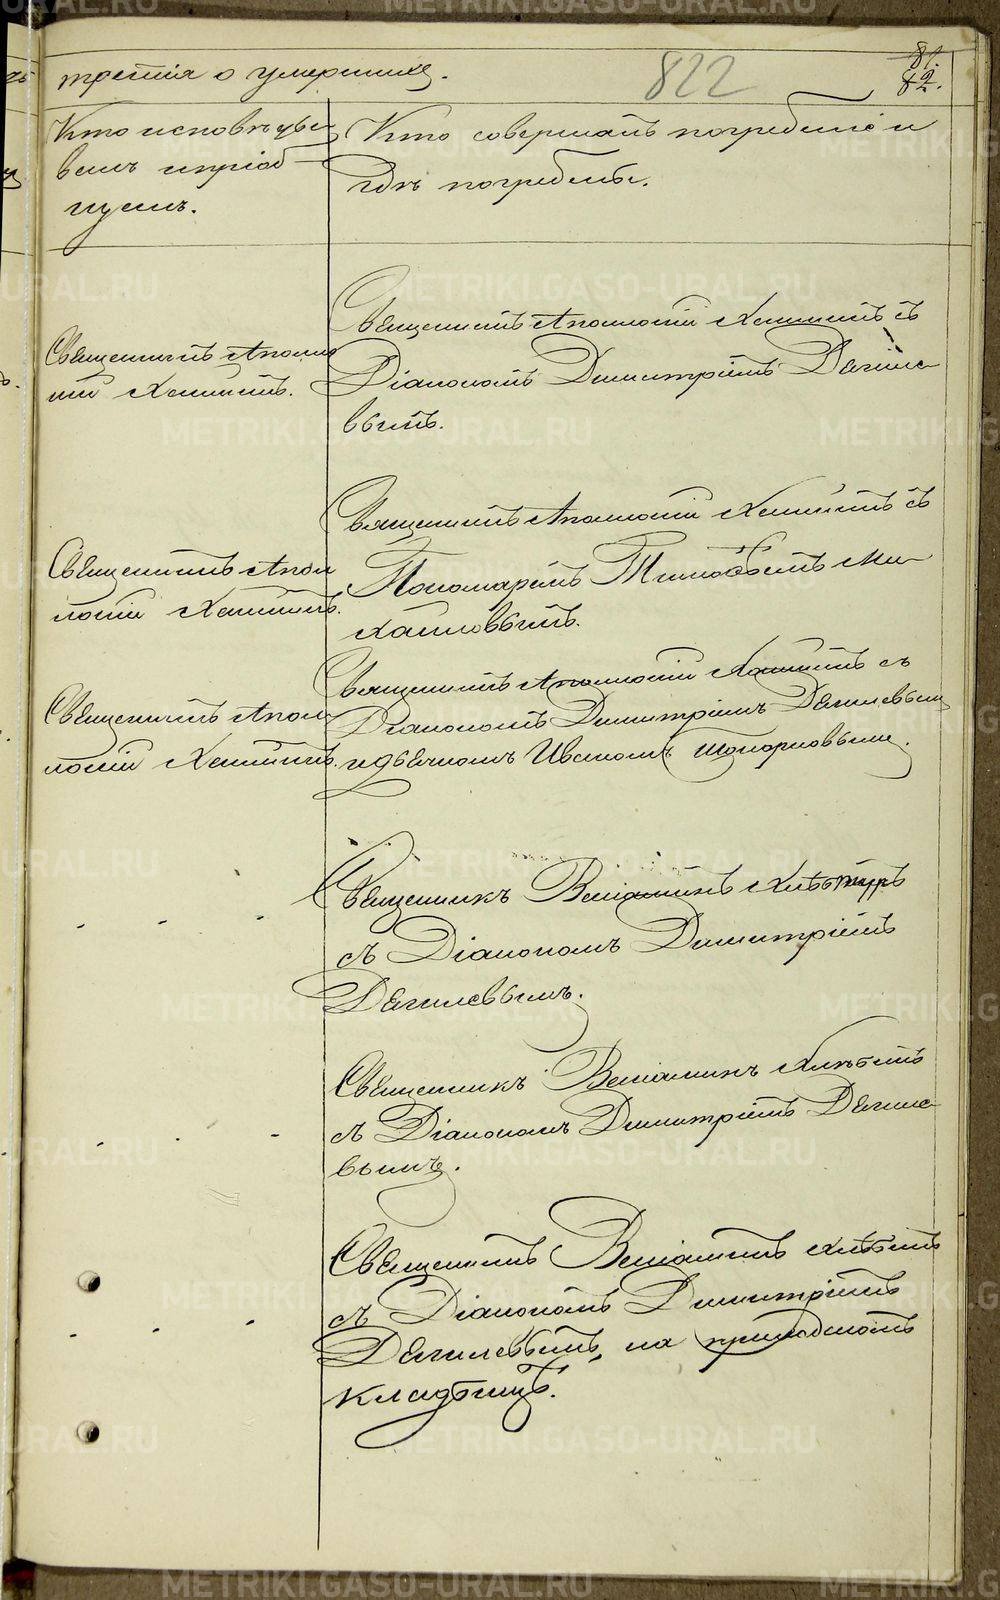 третія о умершихъ.
822
81.
82.
Кто исповѣды-
валъ и пріоб-
щилъ.
Кто совершалъ погребеніе и
гдѣ погребены.
Священникъ Аполло-
ній
Священникъ Аполлоній съ
Діакономъ Димитріемъ Дягиле-
вымъ.
Священникъ Апол-
лоній
Священникъ Аполлоній съ
Пономаремъ Тимофеемъ Ми-
хайловымъ.
Священникъ Апол-
лоній
Священникъ Аполлоній съ
Діакономъ Димитріемъ Дягилевымъ
и дьячкомъ Иваномъ Топорковымъ.
Священникъ Веніаминъ
съ Діакономъ Димитріемъ
Дягилевымъ.
Священникъ Веніаминъ
съ Діакономъ Димитріемъ Дягиле-
вымъ.
Священникъ Веніаминъ
съ Діакономъ Димитріемъ
Дягилевымъ, на приходскомъ
кладбищѣ.
METRIKI.GASO-URAL.RU